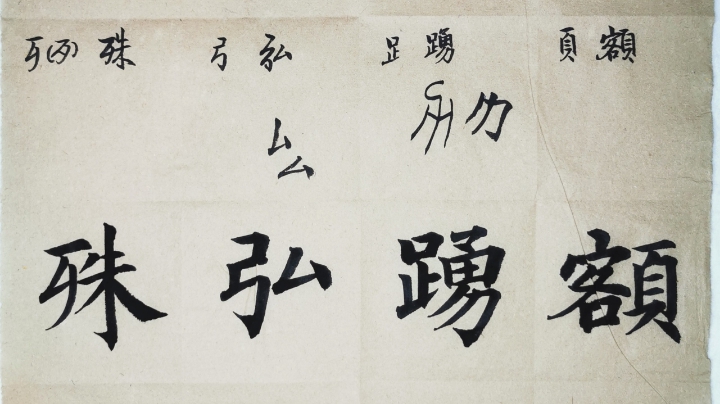 歹 殊 弓 弘 𧾷 踴 頁 額
厶 厶 力
殊 弘 踴 額